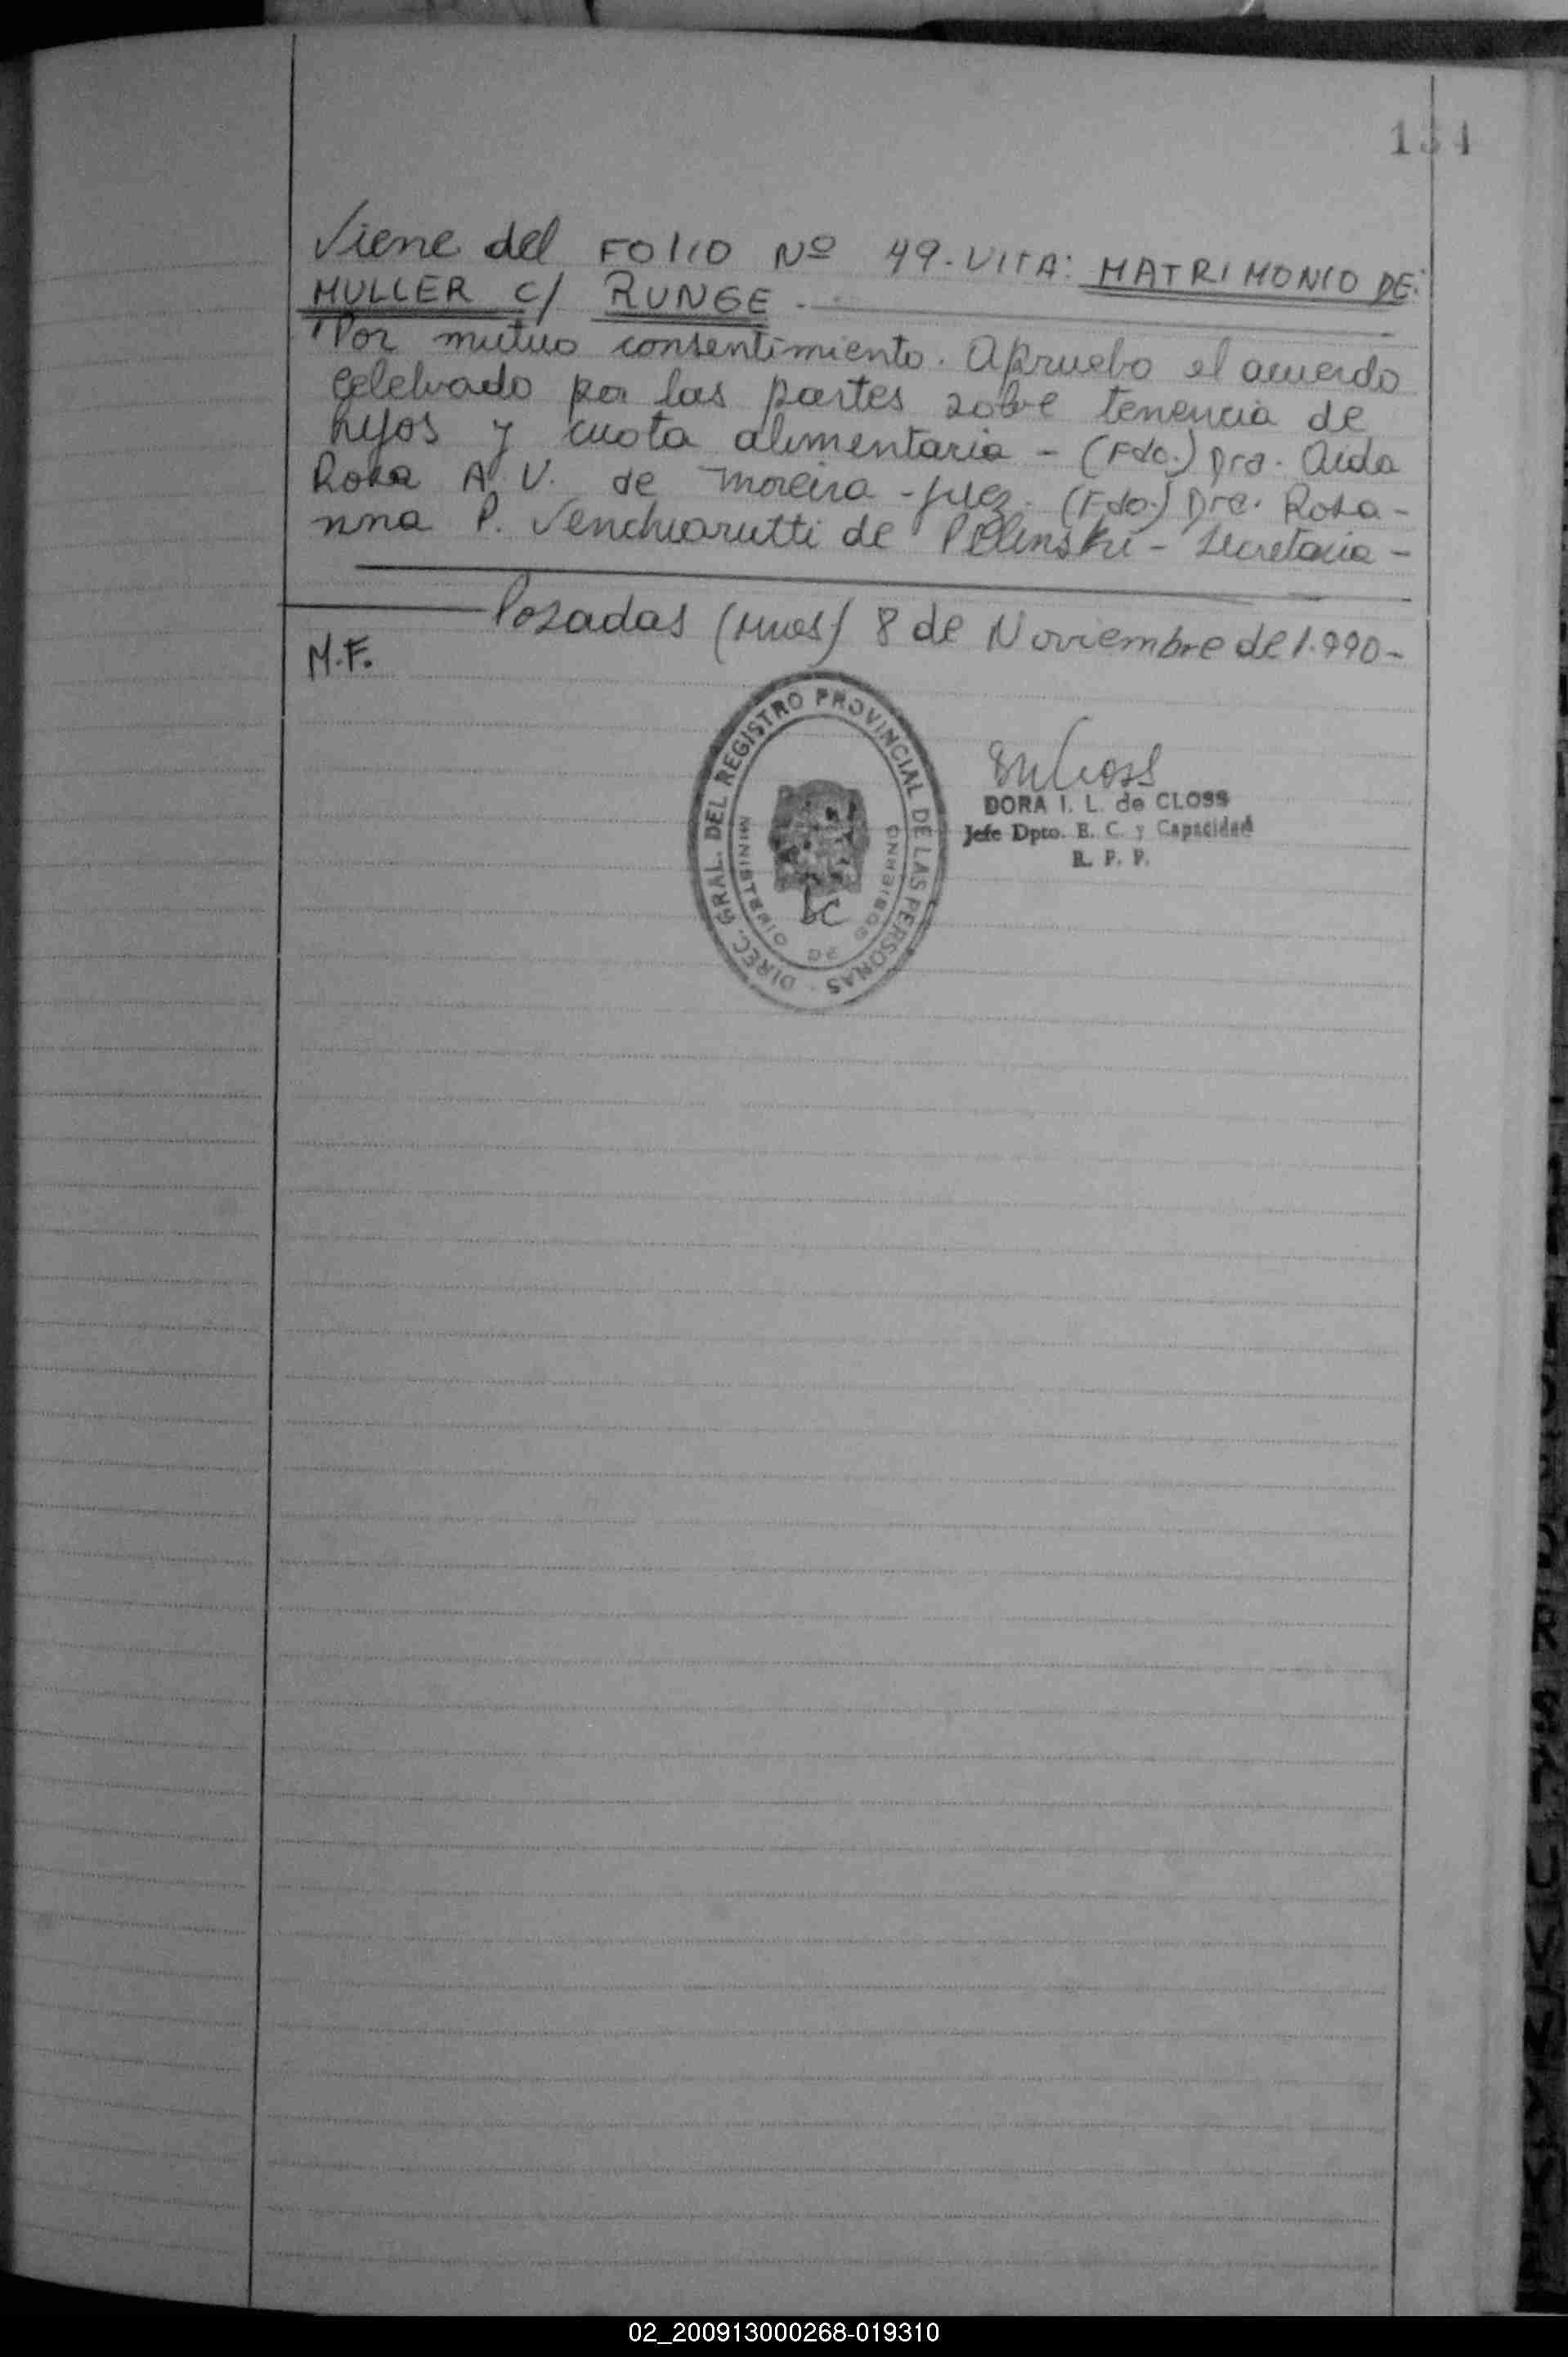 134
Viene del FOLIO Nº 49-VTTA: MATRIMONIO DE:
MULLER C/ RUNGE.
"Por mutuo consentimiento. Apruebo el acuerdo
celebrado por las partes sobre tenencia de
hijos y cuota alimentaria - (Fdo.) Dra. Aida
Rosa A.V. de Moreira - Juez. (Fdo.) Dra. Rosa-
nna P. Venchiarutti de Pelinski - Secretaria -
Posadas (Mnes) 8 de Noviembre de 1.990-
M.F.
DIREC. GRAL. DEL REGISTRO PROVINCIAL DE LAS PERSONAS
MINISTERIO DE GOBIERNO
DORA I. L. de CLOSS
Jefe Dpto. E. C. y Capacidad
R. P. P.
02_200913000268-019310